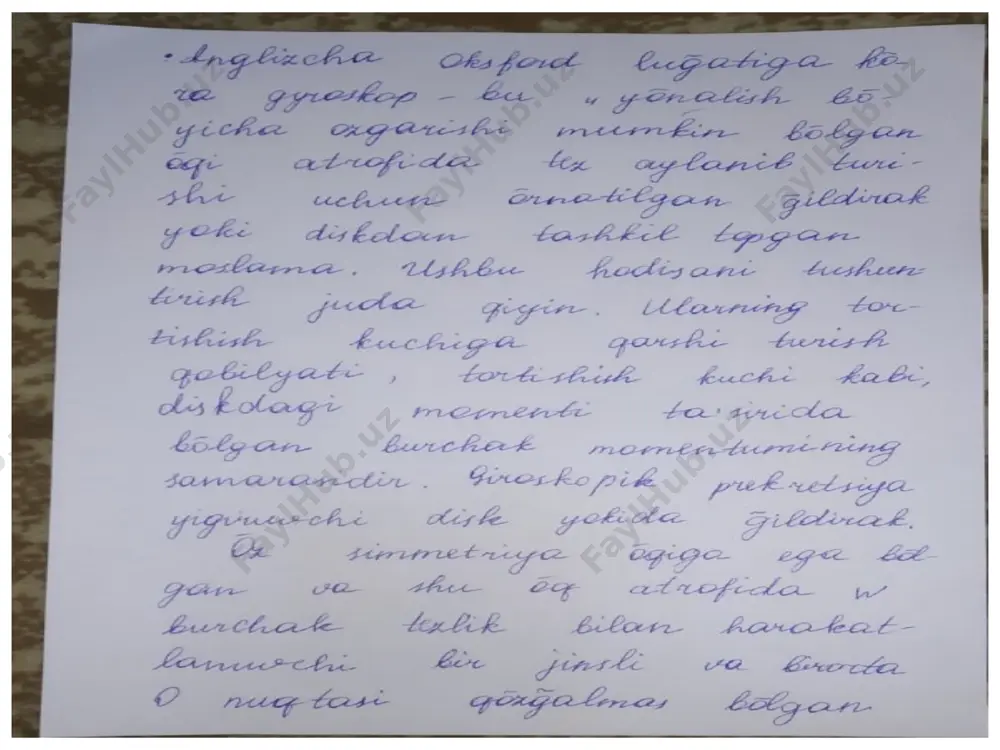 • Anglizcha oksford luḡatiga kō-
ra gyroskop – bu „ yōnalish bō
yicha ozgarishi mumkin bōlgan
ōqi atrofida tez aylanib turi-
shi uchun ōrnatilgan ḡildirak
yoki diskdan tashkil topgan
moslama. Ushbu hodisani tushun-
tirish juda qiyin. Ularning tor-
tishish kuchiga qarshi turish
qobilyati, tortishish kuchi kabi,
diskdagi momenti ta'sirida
bōlgan burchak momentumining
samarasidir. Giroskopik prekretsiya
yigiruvchi disk yokida ḡildirak.
Ōz simmetriya ōqiga ega bōl-
gan va shu ōq atrofida w
burchak tezlik bilan harakat-
lanuvchi bir jinsli va birorta
O nuqtasi qōzḡalmas bōlgan
FaylHub.uz
FaylHub.uz
FaylHub.uz
FaylHub.uz
FaylHub.uz